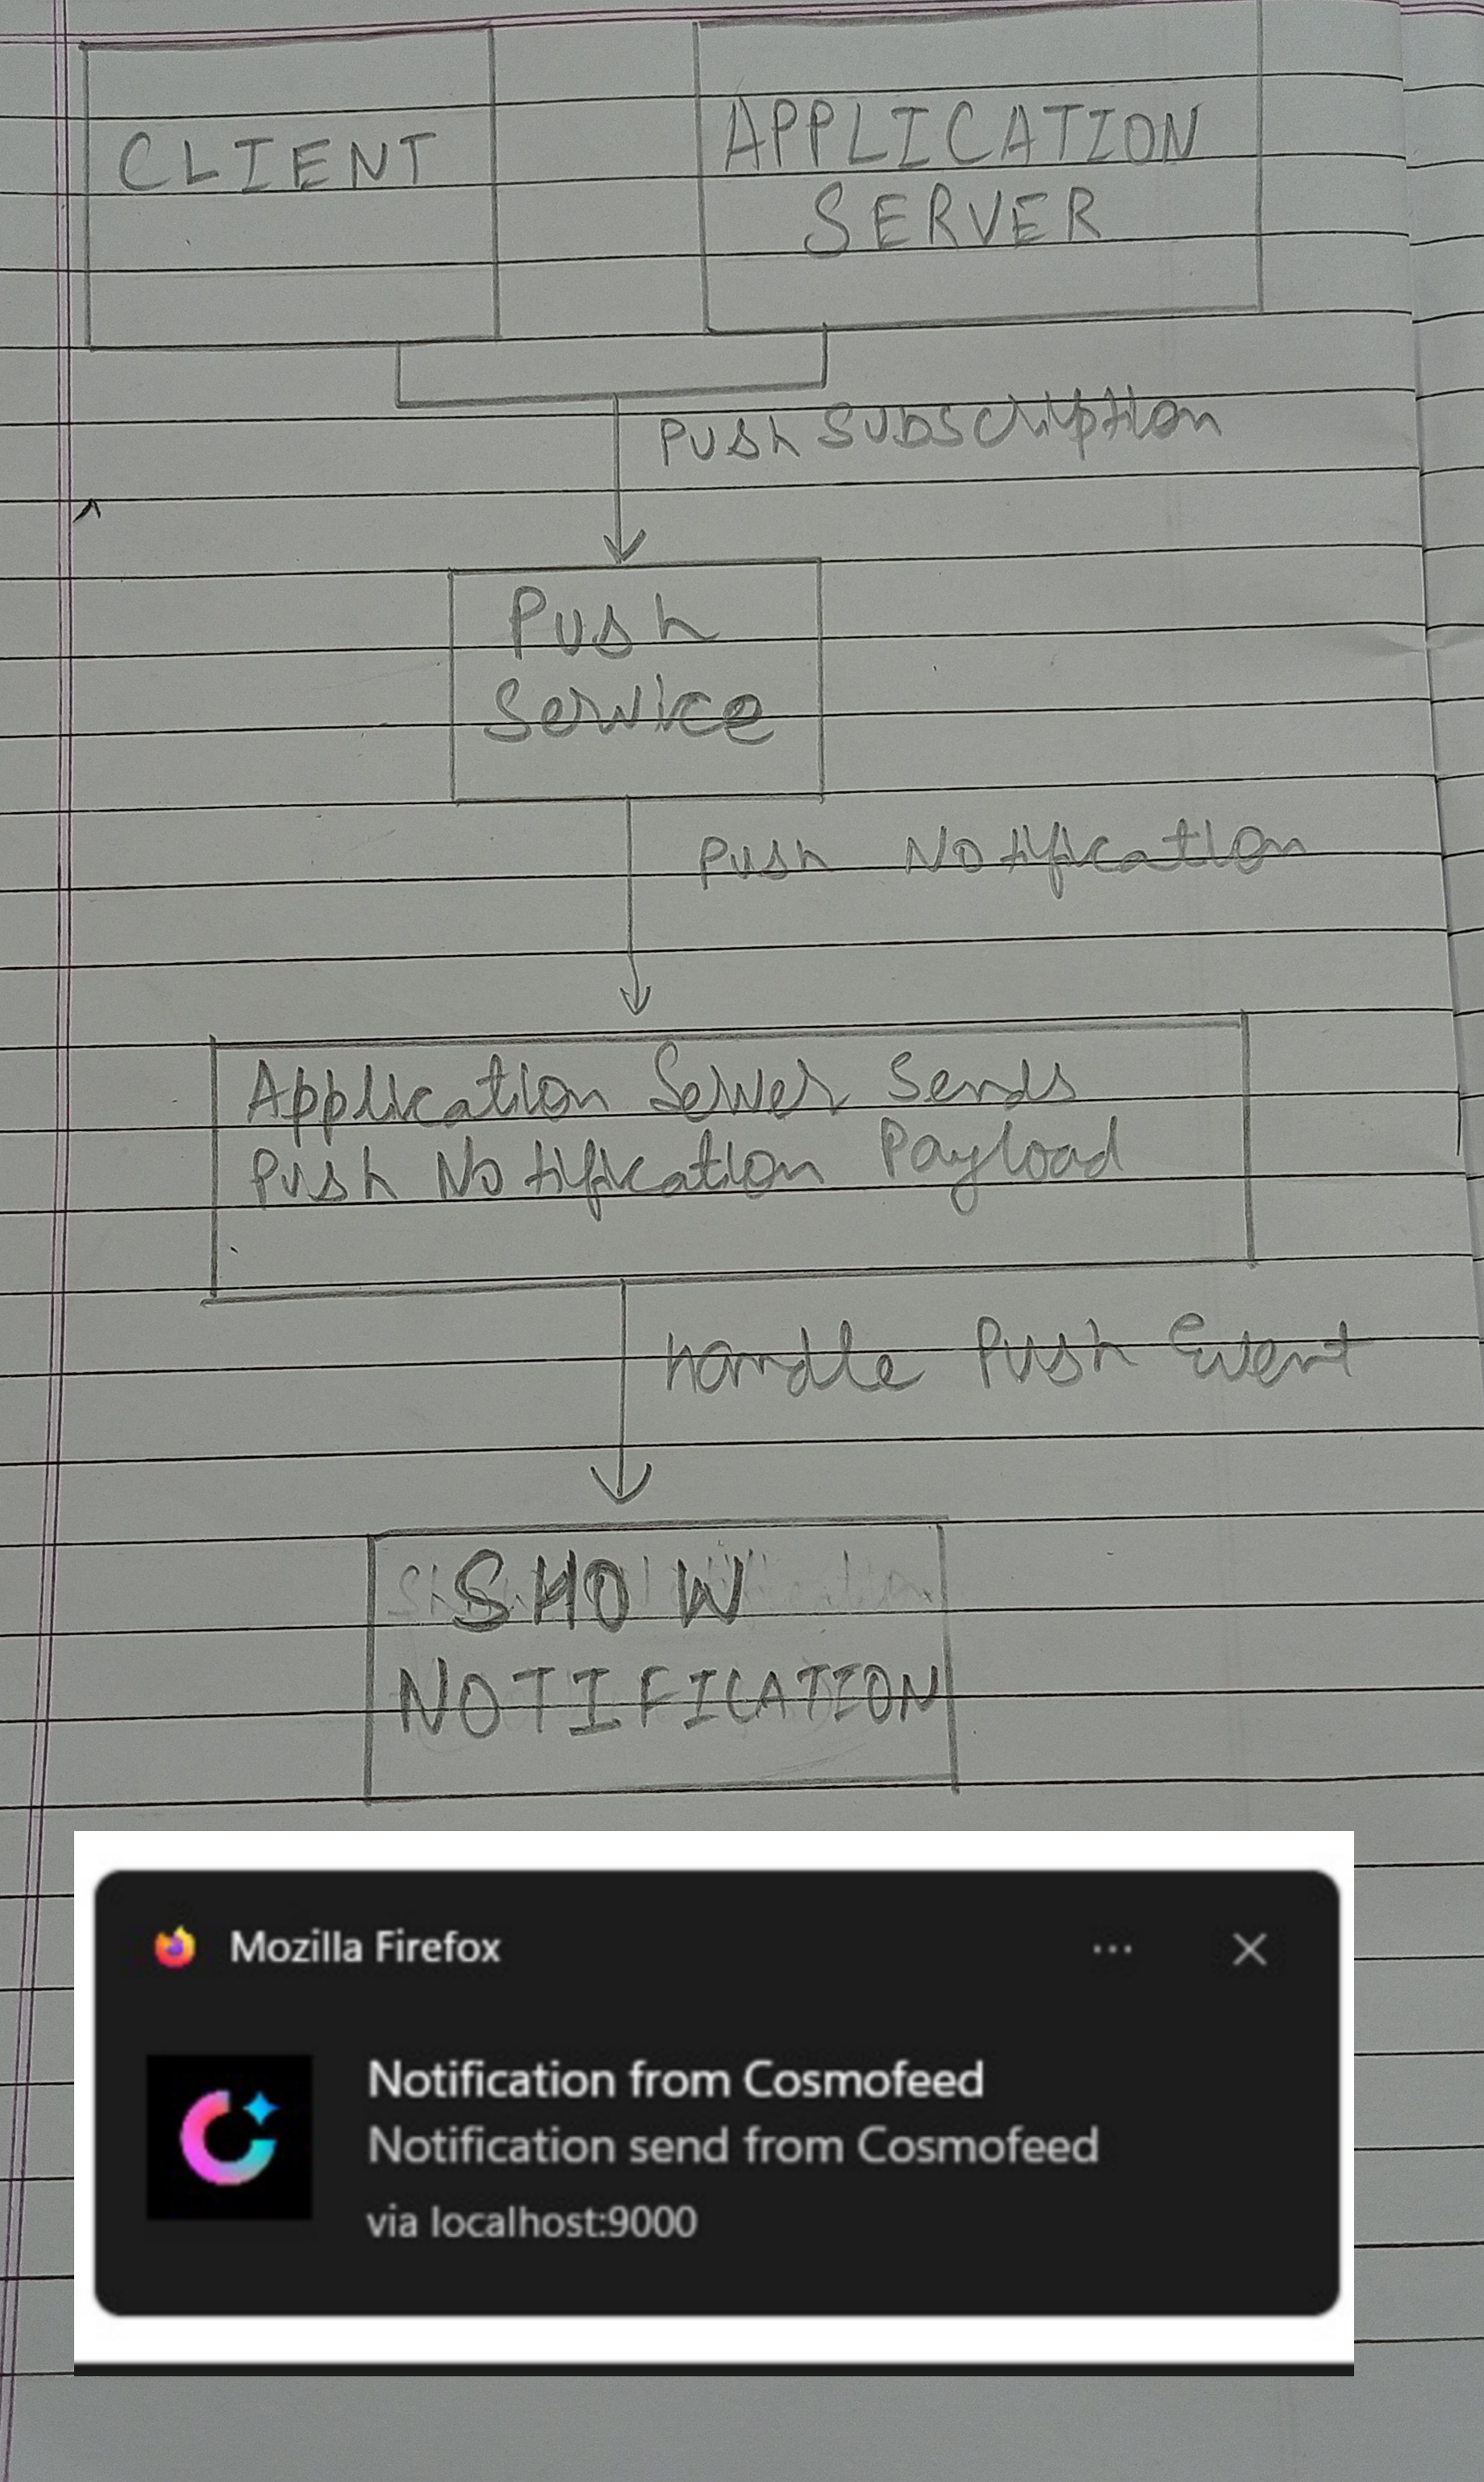 CLIENT
APPLICATION
SERVER
PUSH SUBSCRIPTION
Push
Service
Push Notification
Application Server Sends
Push Notification Payload
handle Push Event
SHOW
NOTIFICATION
Mozilla Firefox
Notification from Cosmofeed
Notification send from Cosmofeed
via localhost:9000